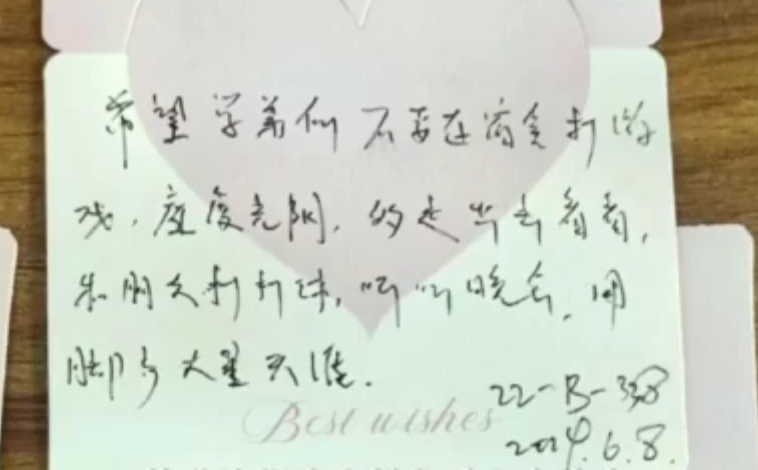 希望学弟们不要在宿舍打游
戏，虚度光阴，多走出去看看，
和朋友打打球，听听晚会，用
脚步丈量天涯.
22-B-338
2024.6.8.
Best wishes